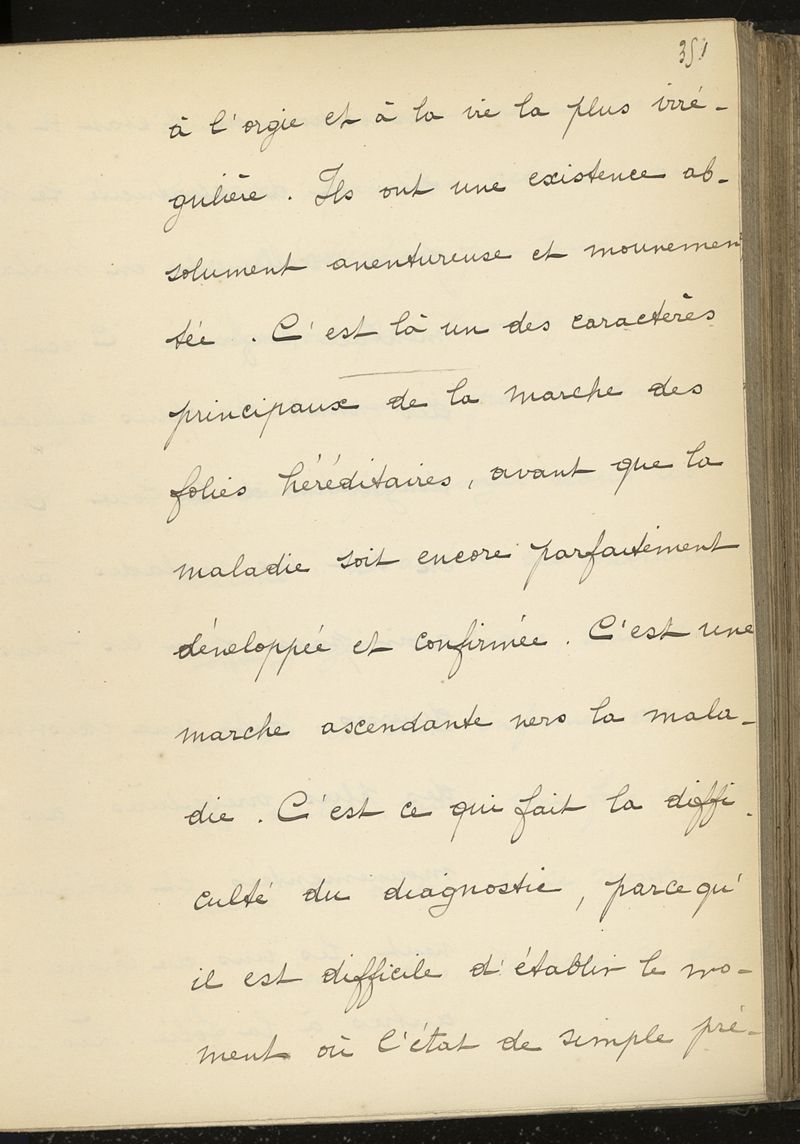 351
à l'orgie et à la vie la plus irré-
gulière. Ils ont une existence ab-
solument aventureuse et mouvemen
tée. C'est là un des caractères
principaux de la marche des
folies héréditaires, avant que la
maladie soit encore parfaitement
développée et confirmée. C'est une
marche ascendante vers la mala-
die. C'est ce qui fait la diffi-
culté du diagnostic, parce qu'
il est difficile d'établir le mo-
ment où l'état de simple pré-